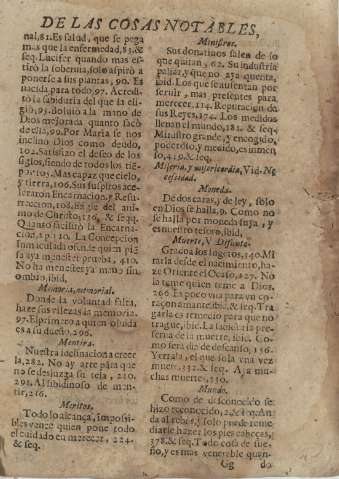 DE LAS COSAS NOTABLES,
nal, 81. Es salud, que se pega
mas que la enfermedad, 83. &
seq. Lucifer quando mas es-
tiró la soberuia, solo aspiró a
ponerse a sus plantas, 90. Es
nacida para todo, 97. Acredi-
to la sabiduria del que la eli-
gió, 95. Boluio a la mano de
Dios mejorada quanto sacó
de ella, 99. Por Maria se nos
inclino Dios como deudo,
102. Satisfizo el deseo de los
siglos, siendo de todos los tié-
pos. 105. Mas capaz que cielo,
y tierra, 106. Sus suspiros ace-
leraron Encarnacion, y Resu-
rreccion, 108. Es del
de Christo, & seqq.
Quanto facilitó la Encarna-
cion, La Concepcion
Inmaculada de quien pié-
sa aya menester prueba, 410.
No ha menester ya mano sin
ombro, ibid.
Memoria, memorial.
Donde la voluntad falta,
haze sus vilezas la memoria.
97. El primero a quien oluida
es a su dueño, 296.
Mentira.
Nuestra inclinacion a creer
la, 282. No ay arte para que
no se desluzga su tela, 210.
298. Al subidinoso de men-
tir, 216.
Meritos.
Todo lo alcança, impossi-
bles vence quien pone todo
el cuidado en merecer, 224.
& seq.
Ministros.
Sus donatiuos salen de lo
que quitan, 62. Su industria
peligr, y que no aya quenta,
ibid. Los que se ausentan por
seruir, mas presentes para
merecer, 114. Reputacion de
sus Reyes, 174. Los medidos
llenan el mundo, 182. & seq.
Ministro grande, y encogido,
poderoso, y medido, es inmen
so, 419. & seq.
Miseria, y misericordia, Vid. Ne
cessidad.
Moneda.
De dos caras, y de ley, solo
en Dios se halla, 9. Como no
se halla por moneda suya, y
es nuestro tesoro, ibid.
Muerte, V. Difunto.
Gracoa los ingratos, 140. Mi
rarla desde el nacimiento, ha-
ze Oriente el Ocaso, 227. No
la teme quien teme a Dios,
266. Es poco vna para vn co-
raçon amante, ibid. & seq. Tra
garla es remedio para que no
trague, ibid. La sabiduria pre-
serua de la muerte, ibid. Co-
mo será de descanso, 156.
Yerrala, el que sola vna vez
muere, 332. & seq. A ja mu-
chas muerte, 350.
Mundo.
Como de desconocido se
hizo reconocido, 2. & 10. Anda
al rebes, y solo puede reme-
diarse haze los pies cabeças,
378. & seq. Todo cosa de sue-
ño, y es mas venerable quan-
Gg do